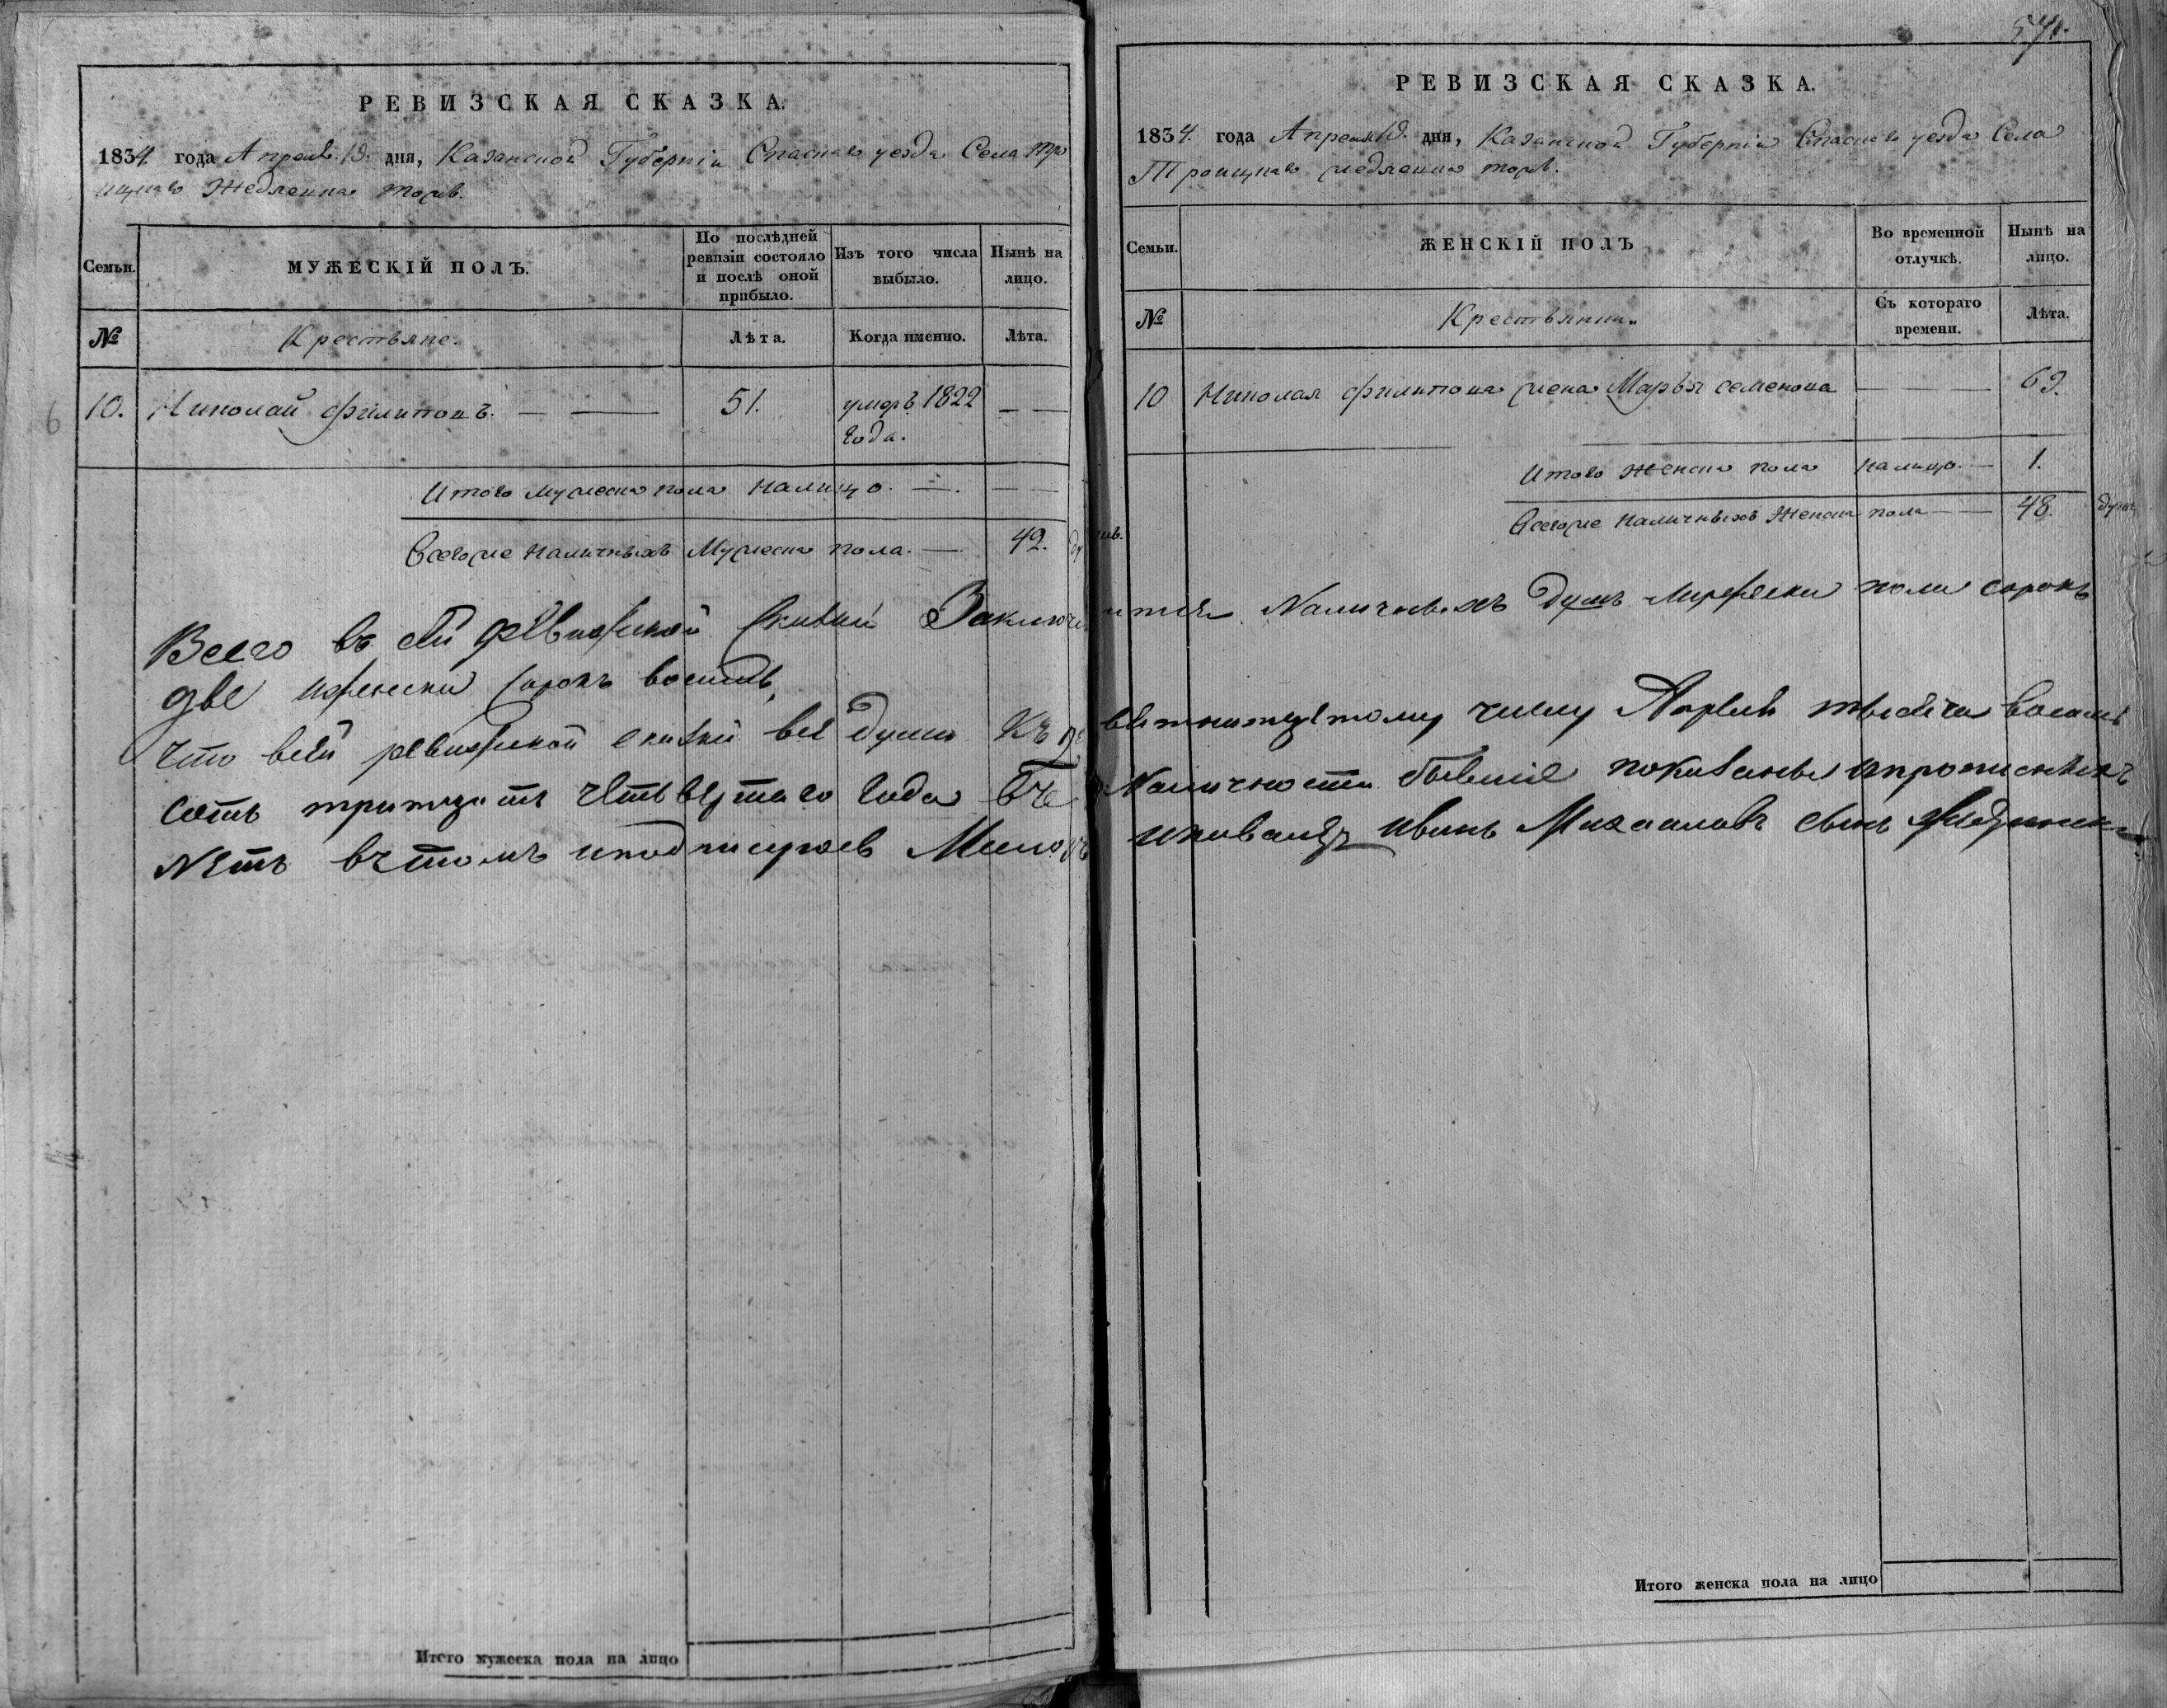 РЕВИЗСКАЯ СКАЗКА.
1834 года Апреля 19. дня, Казанской Губерніи Спаскаго уезда Села Тро
ицкаго Жедленка тожъ.
Семьи.
МУЖЕСКІЙ ПОЛЪ.
По послѣдней ревизіи состояло и послѣ оной прибыло.
Изъ того числа выбыло.
Нынѣ на лицо.
№
Крестьяне.
Лѣта.
Когда именно.
Лѣта.
6
10. Николай филиповъ. — — 51. умеръ 1822 — —
года.
Итого мужеска пола налицо. — . — —
Всегоже наличныхъ Мужеска пола. — 42.
Итого мужеска пола на лицо
РЕВИЗСКАЯ СКАЗКА.
1834. года Апреля 19. дня, Казанской Губерніи Спаскаго уезда Села
Троицкаго жедленка тожъ.
Семьи.
ЖЕНСКІЙ ПОЛЪ
Во временной отлучкѣ.
Нынѣ на лицо.
№
Крестьянки.
Съ котораго времени.
Лѣта.
10 Николая филипова жена Марья семенова — — 69.
Итого Женска пола налицо. — 1.
Всегоже наличныхъ Женска пола — — 48. душъ
Всего въ сей Ревизской Скаски Заключаитса Наличныхъ Душъ мужеска пола сорокъ
две иженска сорокъ восимь,
что всей ревизской скаски все души къ числу Апреля тысеча восимь
сотъ тритцать четвертаго года Наличности бывшие показаны ипрописныхъ
Нетъ вътомъ иподписуюсь иванъ Михаиловъ сынъ
Итого женска пола на лицо